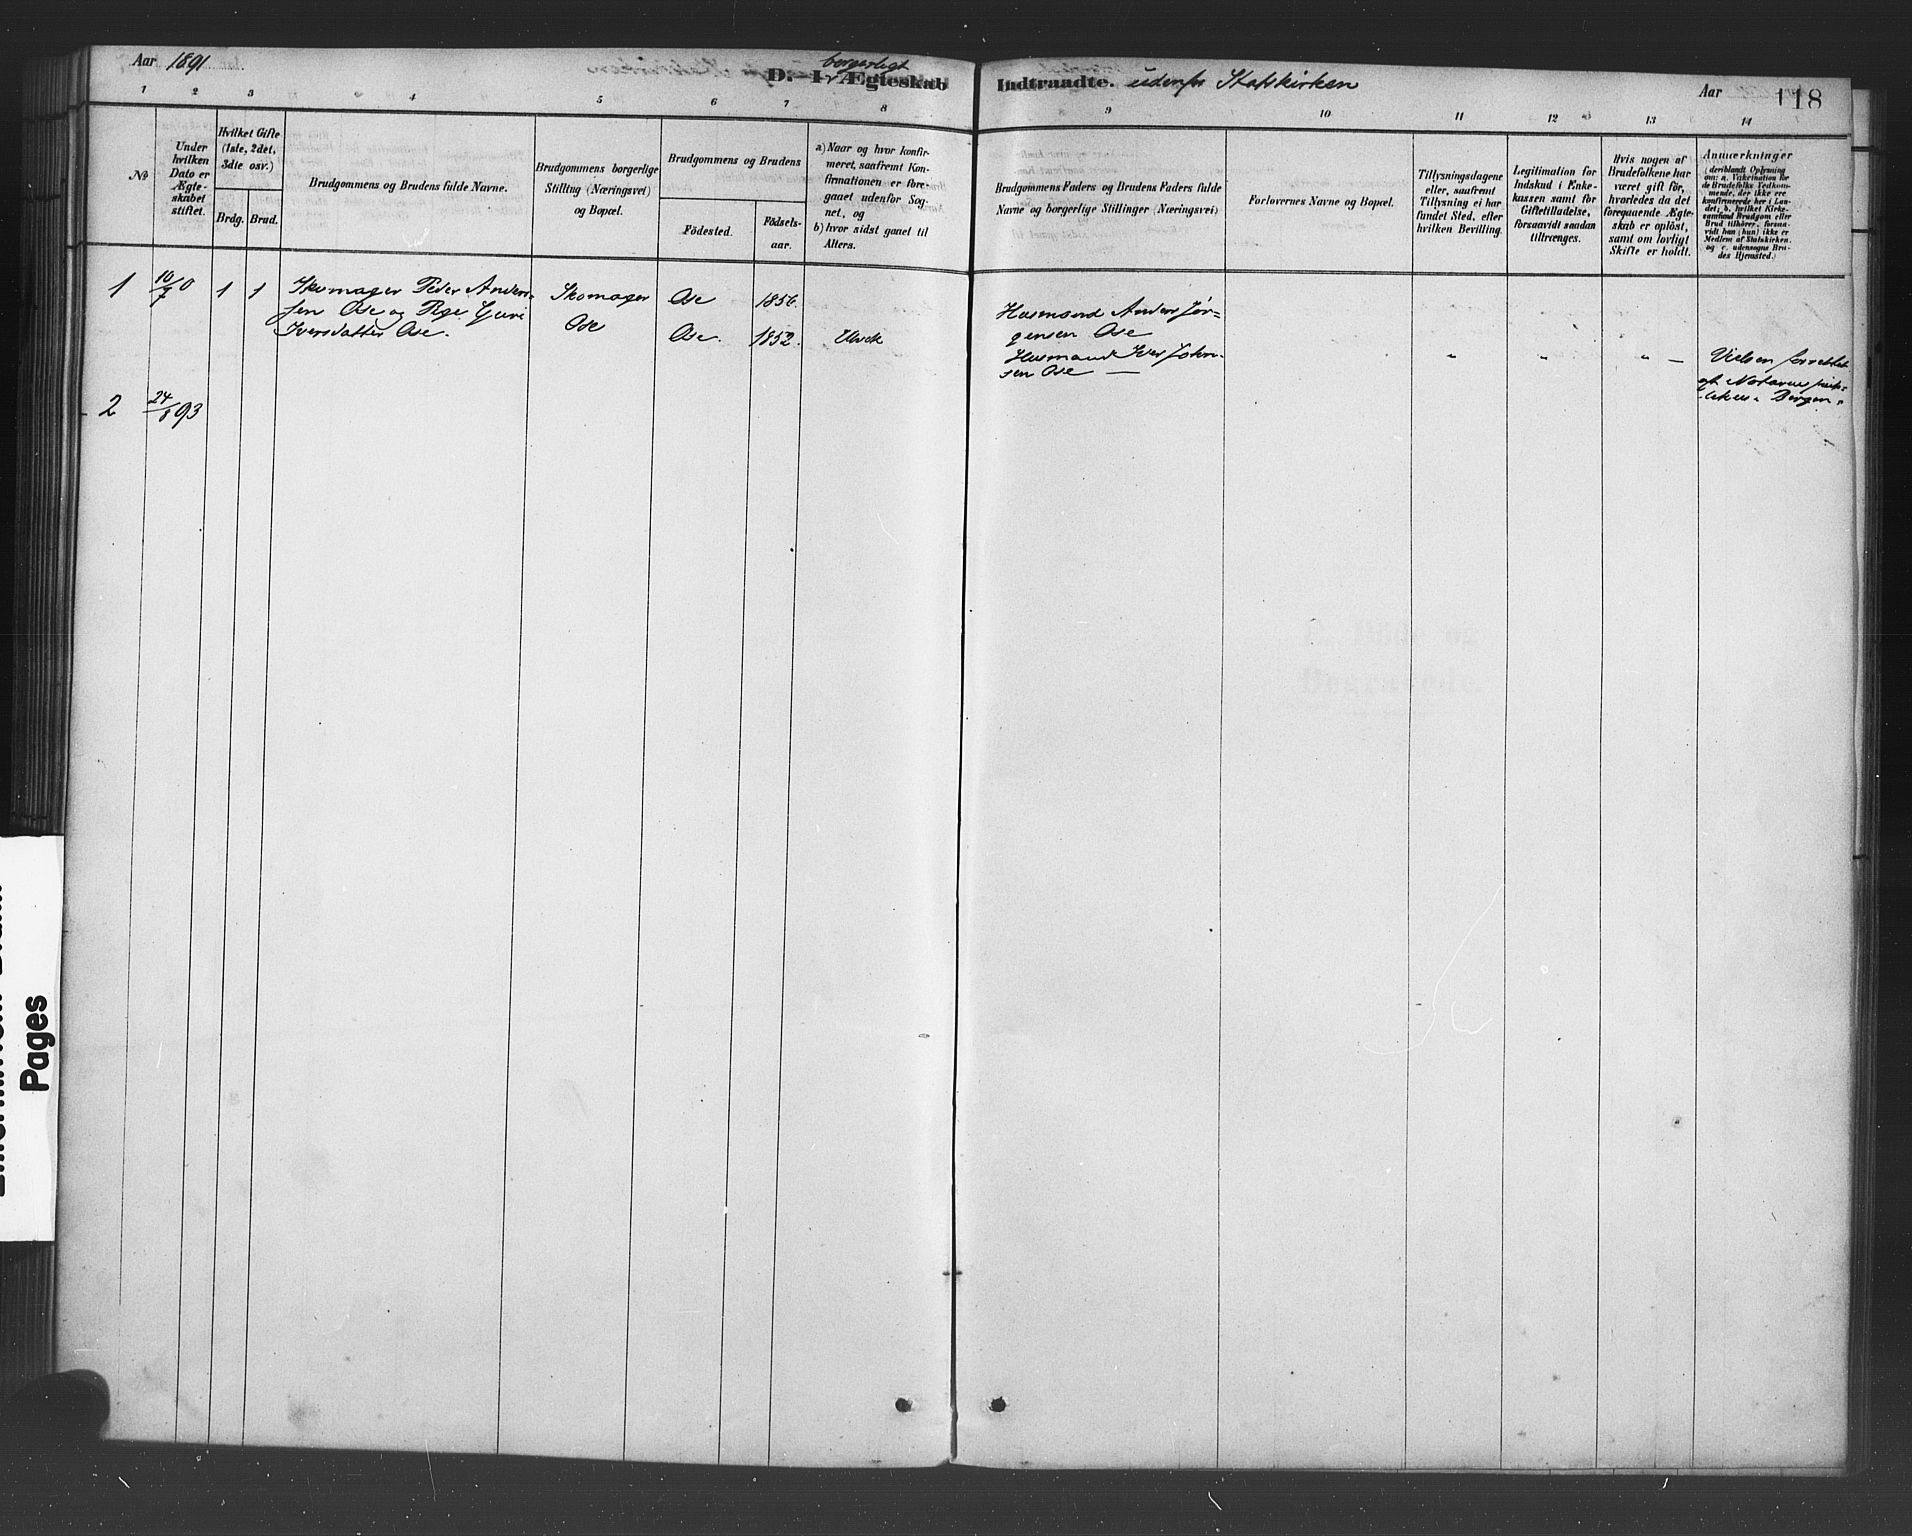 Aar 1891
borgerligt
D. I Ægteskab Indtraadte. udenfor Statskirken
Aar 118
1 2 3 4 5 6 7 8 9 10 11 12 13 14
№
Under
hvilken
Dato er
Ægte-
skabet
stiftet.
Hvilket Gifte
(1ste, 2det,
3dte osv.)
Brdg. Brud.
Brudgommens og Brudens fulde Navne.
Brudgommens borgerlige
Stilling (Næringsvei)
og Bopæl.
Brudgommens og Brudens
Födested.
Födsels-
aar.
a) Naar og hvor konfir-
meret, saafremt Kon-
firmationen er fore-
gaaet udenfor Sog-
net, og
b) hvor sidst gaaet til
Alters.
Brudgommens Faders og Brudens Faders fulde
Navne og borgerlige Stillinger (Næringsvei)
Forlovernes Navne og Bopæl.
Tillysningsdagene
eller, saafremt
Tillysning ei har
fundet Sted, efter
hvilken Bevilling.
Legitimation for
Indskud i Enke-
kassen samt for
Giftetilladelse,
forsaavidt saadan
tiltrænges.
Hvis nogen af
Brudefolkene har
været gift før,
hvorledes da det
foregaaende Ægte-
skab er opløst,
samt om lovligt
Skifte er holdt.
Anmærkninger
(deriblandt Oplysning
om: a. Vakcination for
de Brudefolks Vedkom-
mende, der ikke ere
konfirmerede her i Lan-
det; b. hvilket Kirke-
samfund Brudgom eller
Brud tilhører, forsaa-
vidt han (hun) ikke er
Medlem af Statskirken,
og c. udensogns Bru-
des Hjemsted.)
1 10/7 0 1 1
Skomager Peder Anders-
sen Ose og Pige Guri
Iversdatter Ose.
Skomager
Ose
Ose 1856.
Ose. 1852.
Husmand Anders Jør-
gensen Ose
Husmand Iver John-
sen Ose —
" " " —
Vielsen forrettet
af Notarius pub-
licus i Bergen.
2 24/8 93